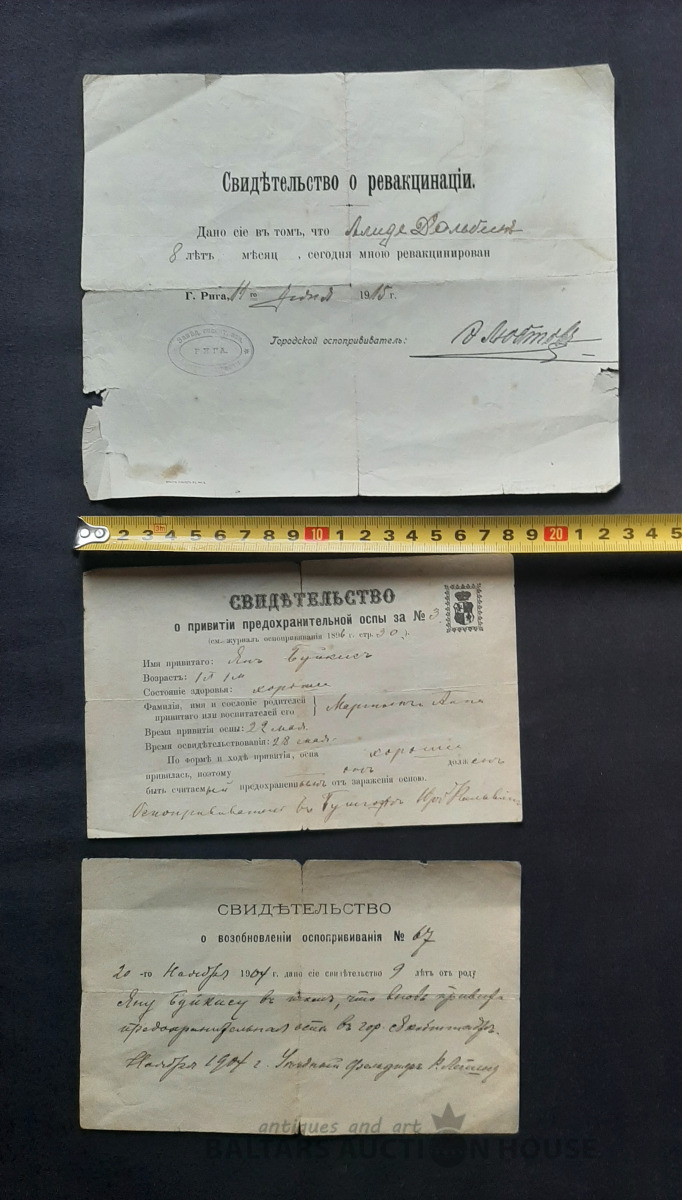 Свидѣтельство о ревакцинаціи.
Дано сіе въ томъ, что Алиде
8 лѣтъ мѣсяц , сегодня мною ревакцинирован
Г. Рига, 11го 1915 г.
Городской оспопрививатель:
РИГА.
2 3 4 5 6 7 8 9 10 1 2 3 4 5 6 7 8 9 20 1 2 3 4 5
СВИДѢТЕЛЬСТВО
о привитіи предохранительной оспы за № 3
(см. журнал оспопрививанія 1896 г. стр. 30).
Имя привитаго: Янъ Буйкисъ
Возрастъ: 1 л 1 м
Состояніе здоровья: хорошее
Фамилія, имя и сословіе родителей
привитаго или воспитателей его Анна
Время привитія оспы: 22 мая
Время освидѣтельствованія: 28 мая
По формѣ и ходѣ привитія, оспа хорошо
привилась, поэтому онъ долженъ
быть считаемый предохраненнымъ отъ зараженія оспою.
Оспопрививатель въ
СВИДѢТЕЛЬСТВО
о возобновленіи оспопрививанія № 67
20 -го Ноября 1904 г. дано сіе свидѣтельство 9 лѣтъ отъ роду
Яну Буйкису въ томъ, что вновь привита
предохранительная оспа въ гор. Якобштадтѣ.
Ноября 1904 г. Уѣздный фельдшеръ
antiques and art
BALTARS AUCTION HOUSE